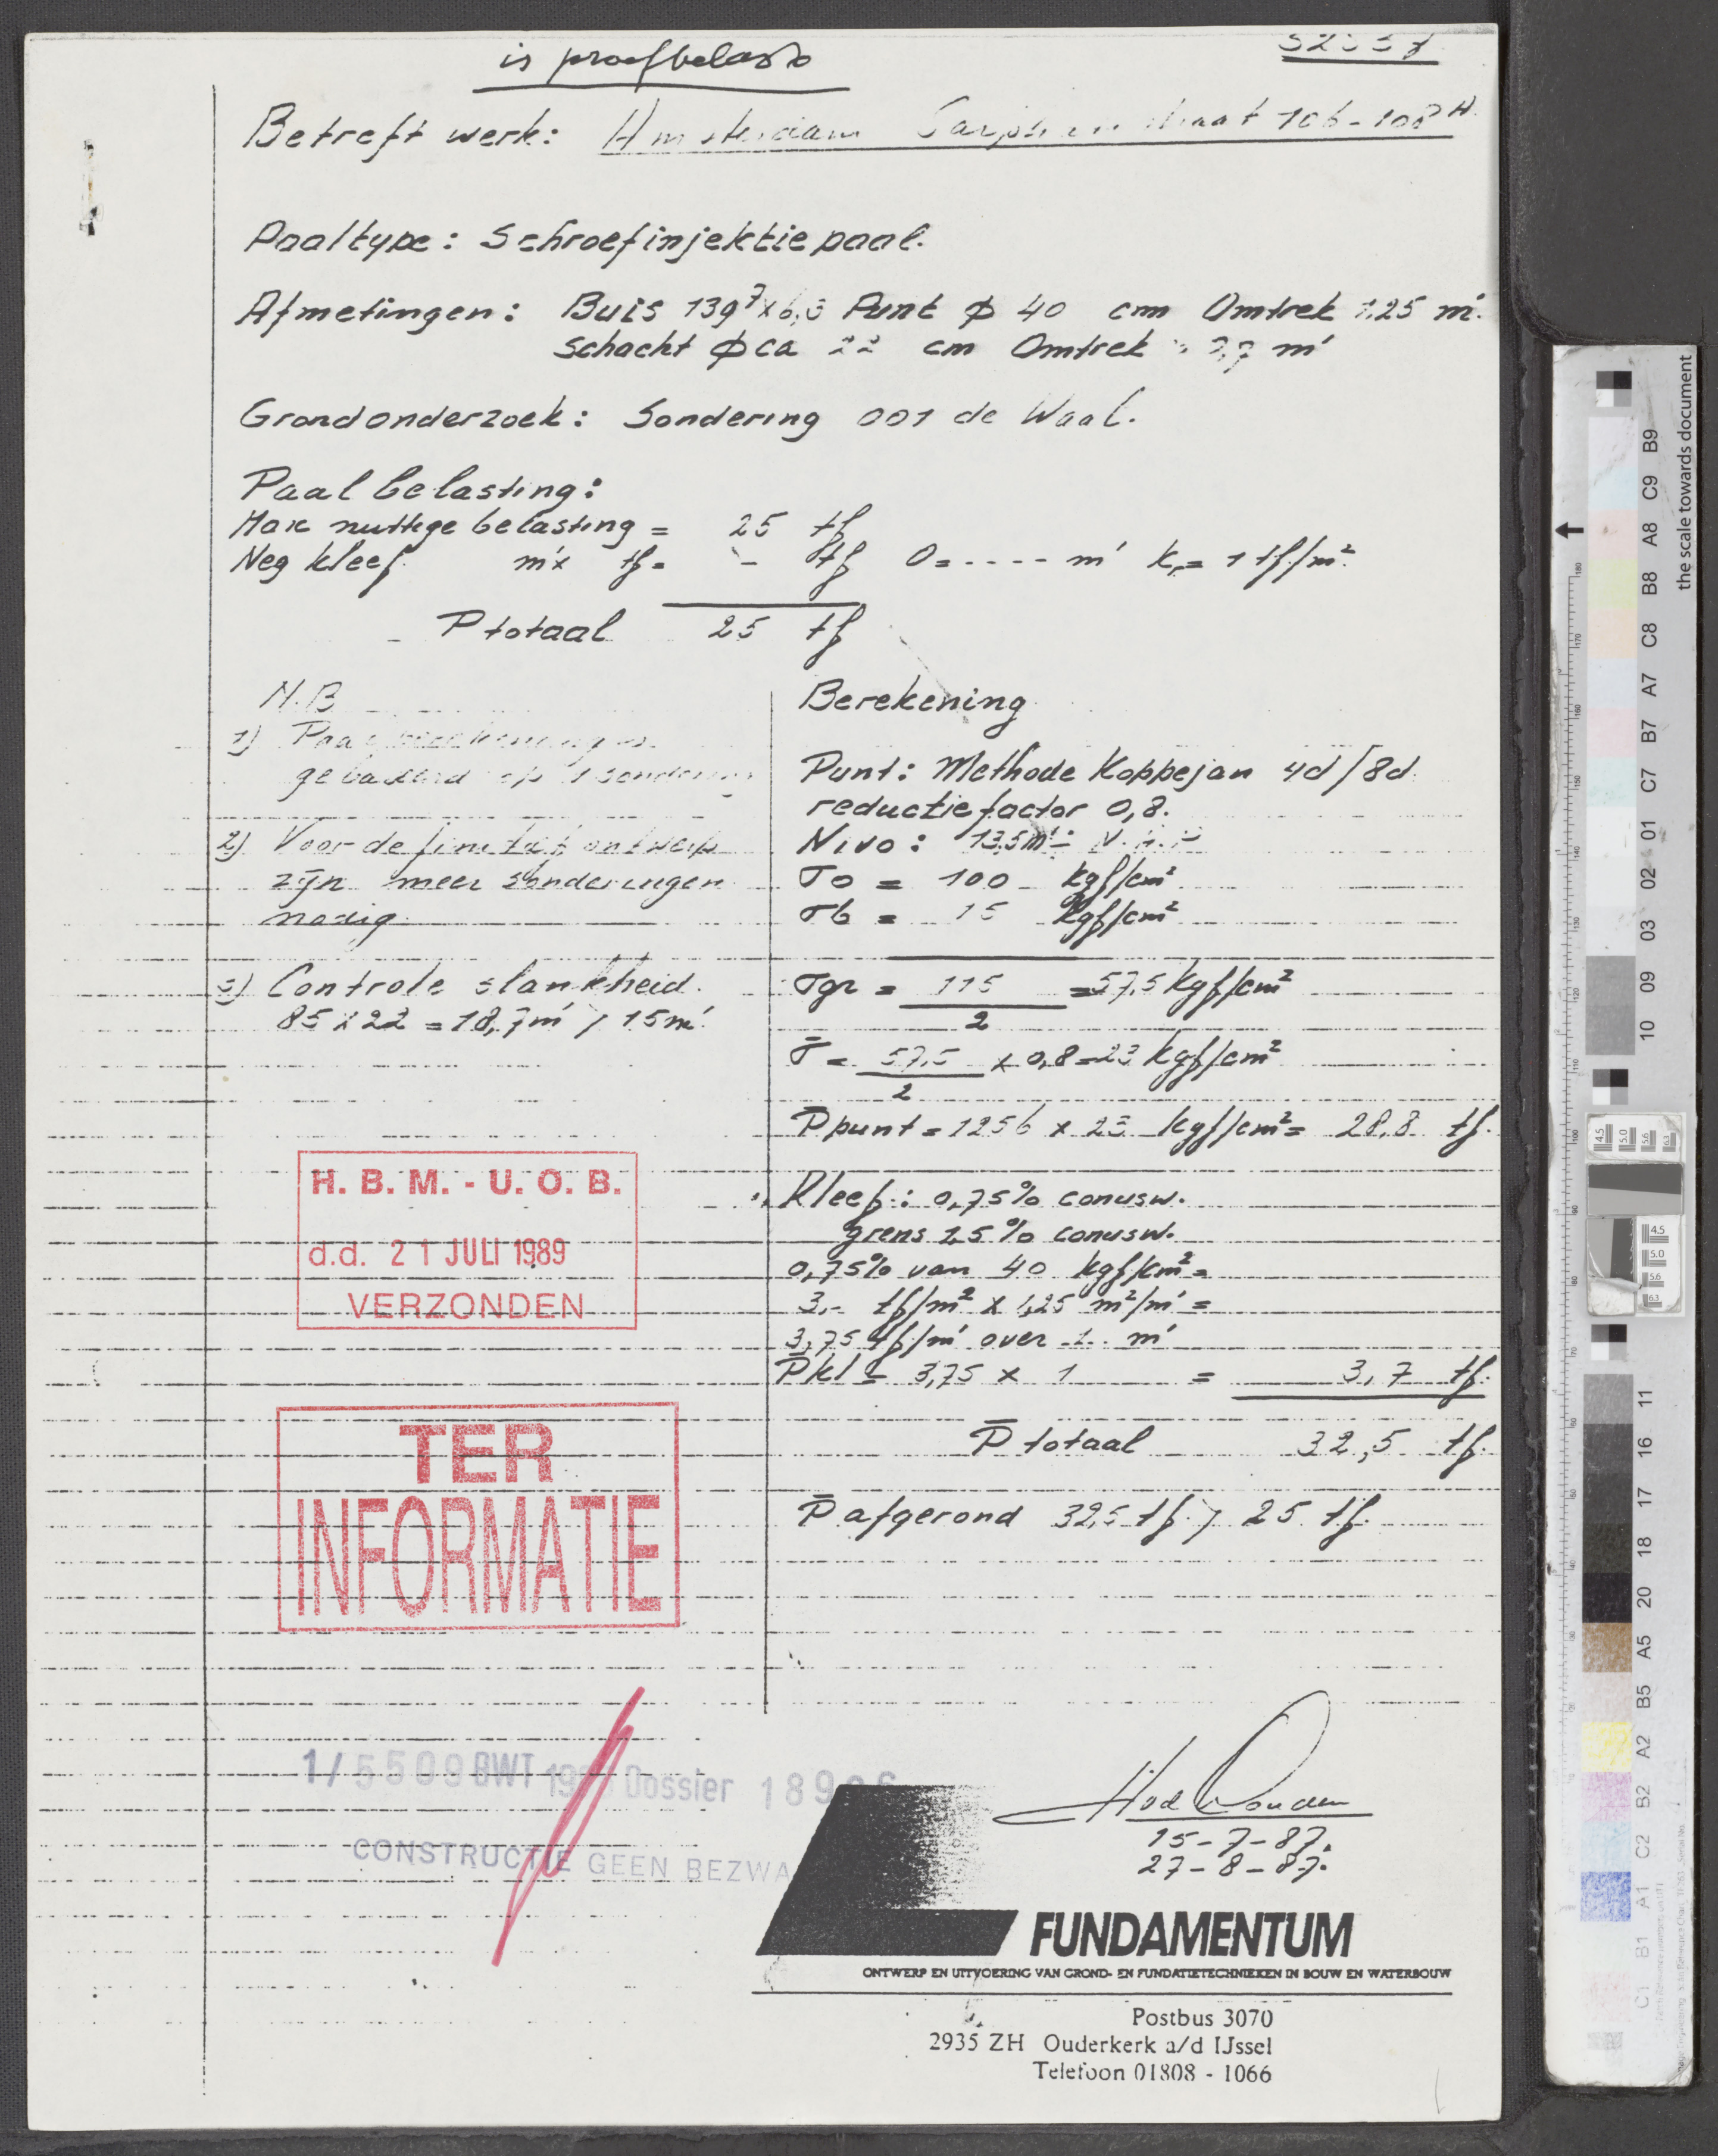 is proefbelast
Betreft werk: Amsterdam Sarphatistraat 106-108 H.
Paaltype: Schroefinjektiepaal.
Afmetingen: Buis 139⁷x6,3 Punt ϕ 40 cm Omtrek 1,25 m'.
Schacht ϕ ca 22 cm Omtrek 0,7 m'
Grondonderzoek: Sondering 001 de Waal.
Paalbelasting:
Max nuttige belasting = 25 tf
Neg kleef m'x tf= - tf O=---- m' k,= 1 tf/m².
P totaal 25 tf
N.B
1) Paalberekening is
gebaseerd op 1 sondering
2) Voor definitief ontwerp
zijn meer sonderingen
nodig
3) Controle slankheid.
85 x 22 = 18,7m' > 15m'.
Berekening
Punt: Methode Koppejan 4d/8d.
reductiefactor 0,8.
Nivo: 13,5m'- N.A.P
σo = 100 kgf/cm²
σb = 15 kgf/cm²
σgr = 115 / 2 = 57,5 kgf/cm²
σ̄ = 57,5 / 2 x 0,8 = 23 kgf/cm²
P̄punt = 1256 x 23 kgf/cm² = 28,8 tf.
Kleef: 0,75% conusw.
grens 1,5% conusw.
0,75% van 40 kgf/cm² =
3,- tf/m² x 1,25 m²/m' =
3,75 tf/m' over 1 m'
P̄kl = 3,75 x 1 = 3,7 tf.
P̄ totaal 32,5 tf.
P̄ afgerond 32,5 tf. > 25 tf.
H. B. M. - U. O. B.
d.d. 21 JULI 1989
VERZONDEN
TER
INFORMATIE
1/5509 BWT Dossier
CONSTRUCTIE GEEN BEZWA
15-7-87.
27-8-87.
FUNDAMENTUM
ONTWERP EN UITVOERING VAN GROND- EN FUNDATIETECHNIEKEN IN BOUW EN WATERBOUW
Postbus 3070
2935 ZH Ouderkerk a/d IJssel
Telefoon 01808 - 1066
the scale towards document
B9 C9 A8 B8 C8 A7 B7 C7 01 02 03 09 10
11 16 17 18 20 A5 B5 A2 B2 C2 A1 B1 C1